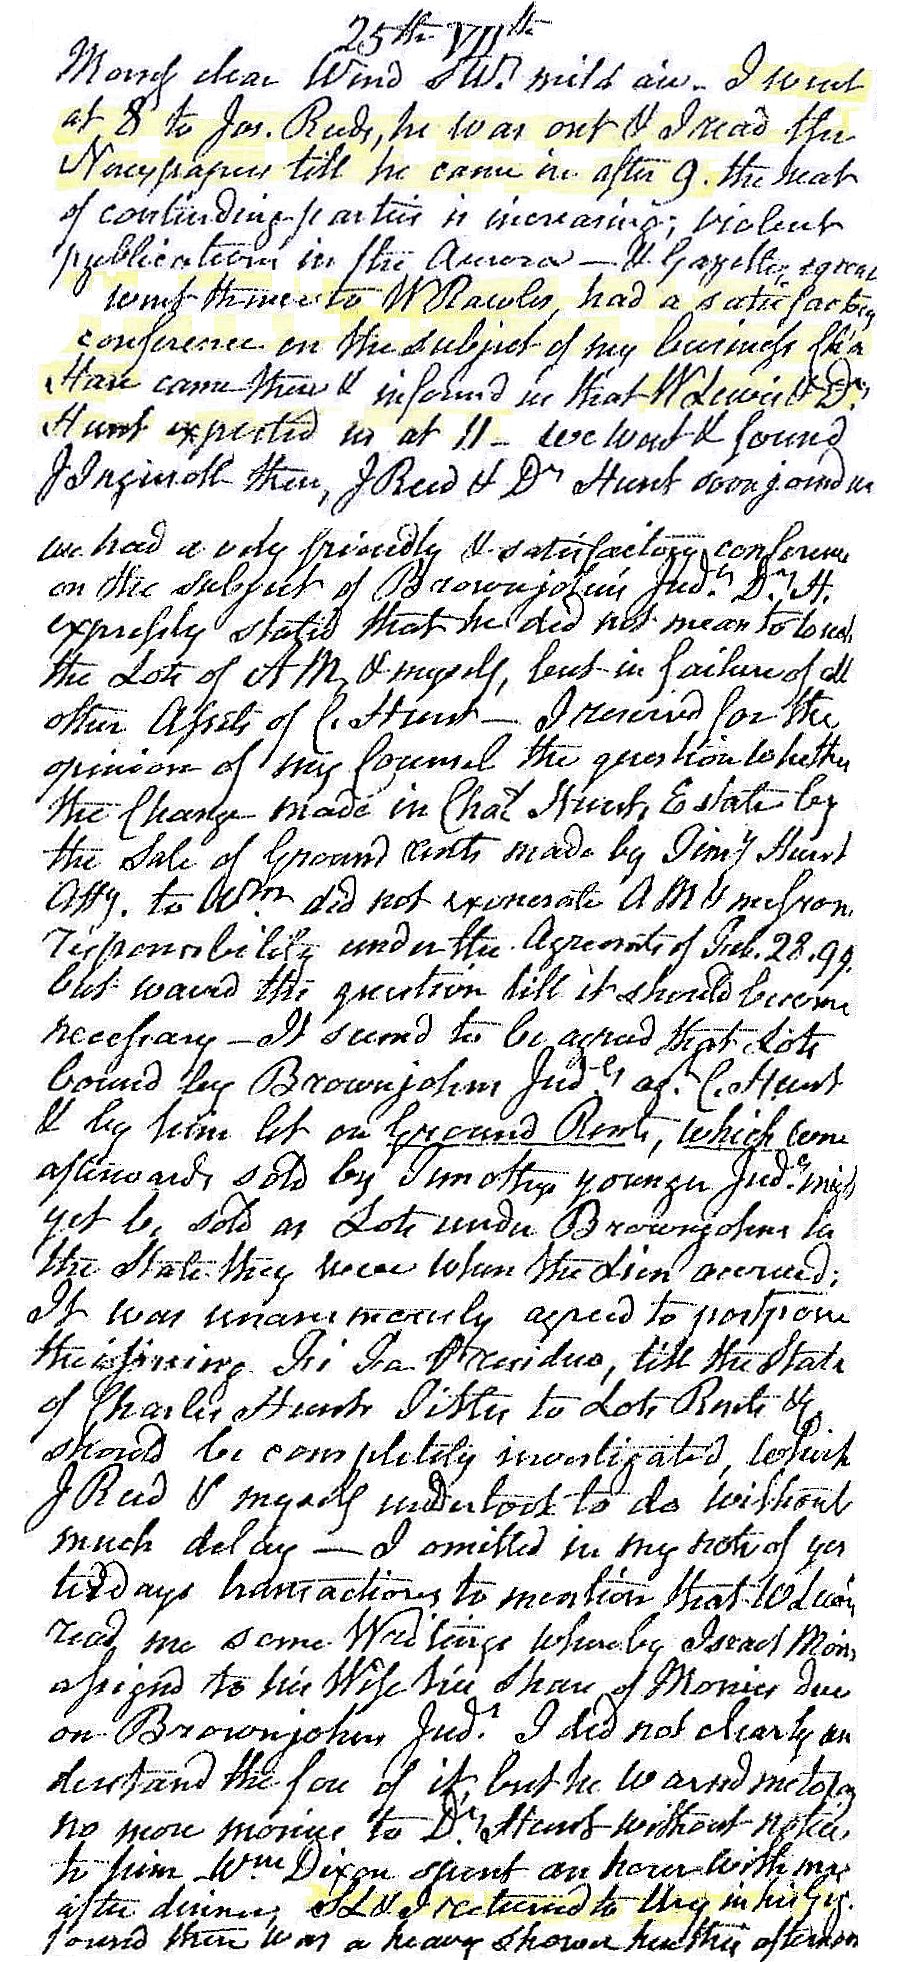 25th VIIth
Morng clear Wind SWr. mild air - I went
at 8 to Jos. Reeds, he was out & I read the
Newspapers till he came in after 9. the heat
of contending parties is increasing; violent
publications in the Aurora — & Gazette, agreat
went thence to W Rawles, had a satisfactory
conference on the subject of my business
Hare came there & informd us that W Lewis & Dr.
Hunt expected us at 11 - we went & found
J Ingersoll there, J Reed & Dr Hunt soon joind us
we had a very friendly & satisfactory conference
on the subject of Brownjohns Judt. Dr. H.
expressly stated that he did not mean to touch
the Lots of AM, & myself, but in failure of all
other Assets of C. Hunt — I reserved for the
opinion of my Counsel the question whether
the Change made in Chas Hunts Estate by
the Sale of Ground rents made by Timy Hunt
Atty. to Wm. did not exonerate AM & me from
responsibility under the Agreemts of Feb. 28. 99.
but waved the question till it should become
necessary — It seemd to be agreed that Lots
bound by Brownjohns Judts agt. C. Hunt
& by him let on Ground Rents, which were
afterwards sold by Timothys younger Judt. might
yet be sold as Lots under Brownjohns in
the State they were when the Lien accrued;
It was unanimously agreed to postpone
the issuing Fi Fa & residuo, till the State
of Charles Hunts Titles to Lots Rents &c
should be completely investigated, which
J Reed & myself undertook to do without
much delay — I omitted in my note of yes
terdays transactions to mention that W Lewis
read me some Writings whereby Israel Morris
assignd to his Wife his Share of Monies due
on Brownjohns Judt. I did not clearly un
derstand the force of it, but he warnd me to pay
no more monies to Dr. Hunt without notice
to him Wm Dixon spent an hour with me
after dinner, SL & I returned to Urg in his Gig.
found there was a heavy shower here this afternoon